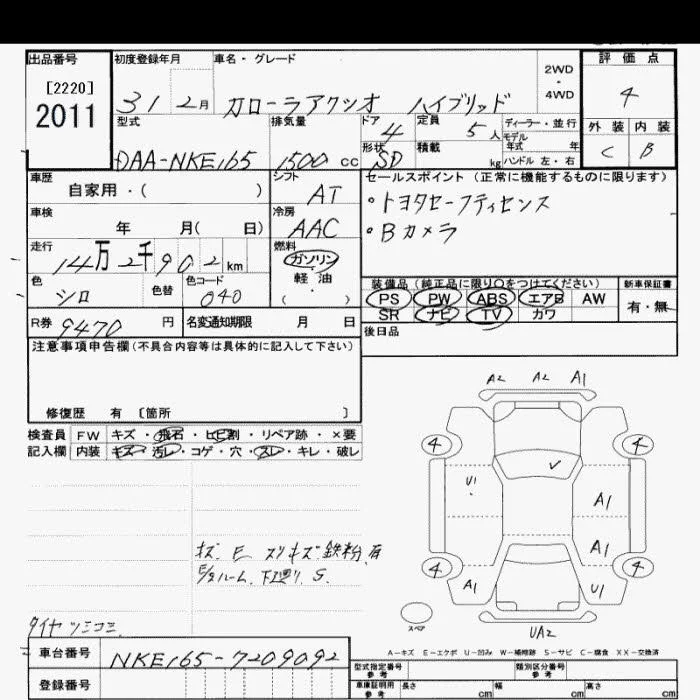 出品番号 初度登録年月 車名・グレード 2WD 評価点
[2220] 31 2月 カローラアクシオ ハイブリッド ・ 4
2011 4WD
型式 排気量 ドア 4 定員 5人 ディーラー・並行 外装 内装
モデル年式 年
DAA-NKE165 1500 cc 形状 SD 積載 kg ハンドル 左・右 C B
車歴 自家用・( ) シフト AT セールスポイント (正常に機能するものに限ります)
・トヨタセーフティセンス
車検 年 月( 日) 冷房 AAC ・Bカメラ
走行 14万2千902km 燃料 ガソリン
軽油
・( )
色 シロ 色替 色コード 040
装備品 (純正品に限り○をつけてください) 新車保証書
PS PW ABS エアB AW 有・無
SR ナビ TV カワ
R券 9470 円 名変通知期限 月 日 後日品
注意事項申告欄 (不具合内容等は具体的に記入して下さい)
修復歴 有 [箇所 ]
検査員 FW キズ・飛石・ヒビ割・リペア跡・×要
記入欄 内装 キズ・汚レ・コゲ・穴・スレ・キレ・破レ
A2 A2 A1
4 4
U1 A1
A1
4 4
A1 U1
スペア UA2
キズ E スリキズ 鉄粉有
E/gルーム、下廻り S.
タイヤ ツミコミ
A-キズ E-エクボ U-凹み W-補修跡 S-サビ C-腐食 XX-交換済
車台番号 NKE165-7209092
登録番号
型式指定番号 参考 類別区分番号 参考
車庫証明用 参考 長さ cm 幅 cm 高さ cm